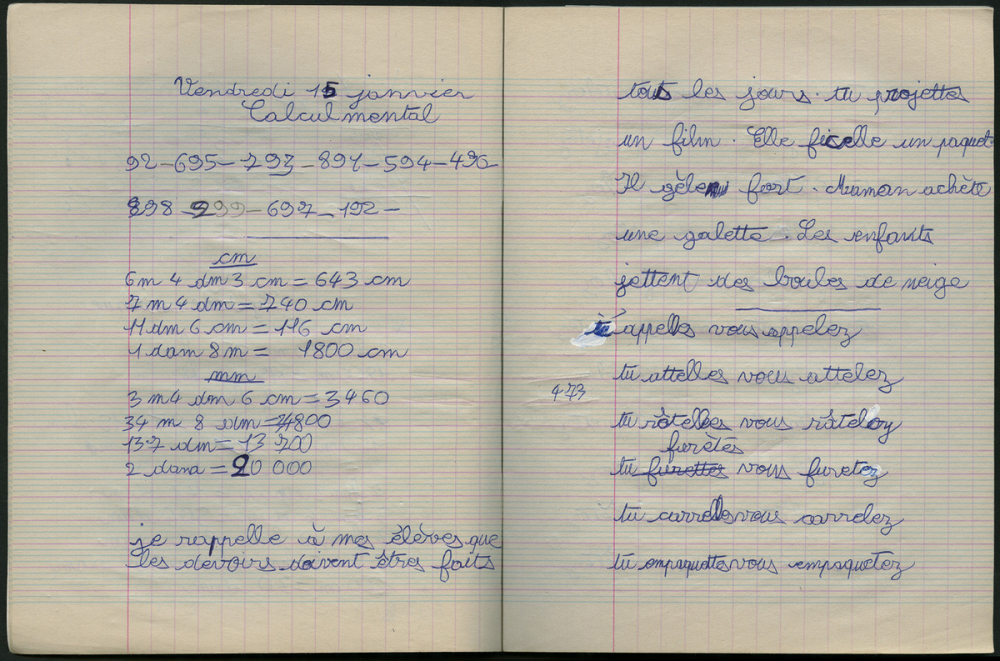 Vendredi 15 janvier
Calcul mental
92 - 695 - 793 - 891 - 594 - 496
898 - 999 - 697 - 192 -
cm
6m 4 dm 3 cm = 643 cm
7 m 4 dm = 740 cm
11 dm 6 cm = 116 cm
1 dam 8 m = 1800 cm
mm
3 m 4 dm 6 cm = 3460
34 m 8 dm = 34800
137 dm = 13 700
2 dam = 20 000
je rappelle à mes élèves que
les devoirs doivent êtres faits
tous les jours. tu projettes
un film. Elle ficelle un paquet.
Il gèle fort. Maman achète
une galette. Les enfants
jettent des boules de neige
tu appelles vous appelez
tu attelles vous attelez
473
tu râtelles vous râtelez
furètes
tu furettes vous furetez
tu carrelles vous carrelez
tu empaquettes vous empaquetez